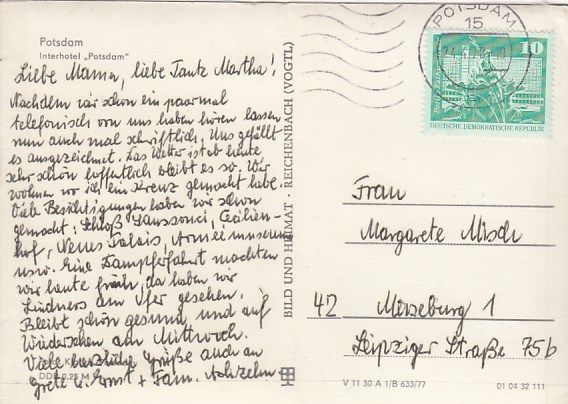 Potsdam
Interhotel „Potsdam"
Liebe Mama, liebe Tante Martha!
Nachdem wir schon ein paarmal
telefonisch von uns haben hören lassen
nun auch mal schriftlich. Uns gefällt
es ausgezeichnet. Das Wetter ist ab heute
sehr schön hoffentlich bleibt es so. Wir
wohnen wo ich ein Kreuz gemacht habe.
Viele Besichtigungen haben wir schon
gemacht: Schloß Sanssouci, Cecilien-
hof, Neues Palais, Armeemuseum
usw. Eine Dampferfahrt machten
wir heute früh, da haben wir
Lindners am Ufer gesehen.
Bleibt schön gesund und auf
Wiedersehen am Mittwoch.
Viele herzliche Grüße auch an
Grete u. Ernst + Fam. Achzehn
DDR 0,25 M
BILD UND HEIMAT · REICHENBACH (VOGTL)
POTSDAM
15
10
DEUTSCHE DEMOKRATISCHE REPUBLIK
Frau
Margarete Misch
42 Merseburg 1
Leipziger Straße 75b
V 11 50 A 1/B 633/77
01 04 32 111